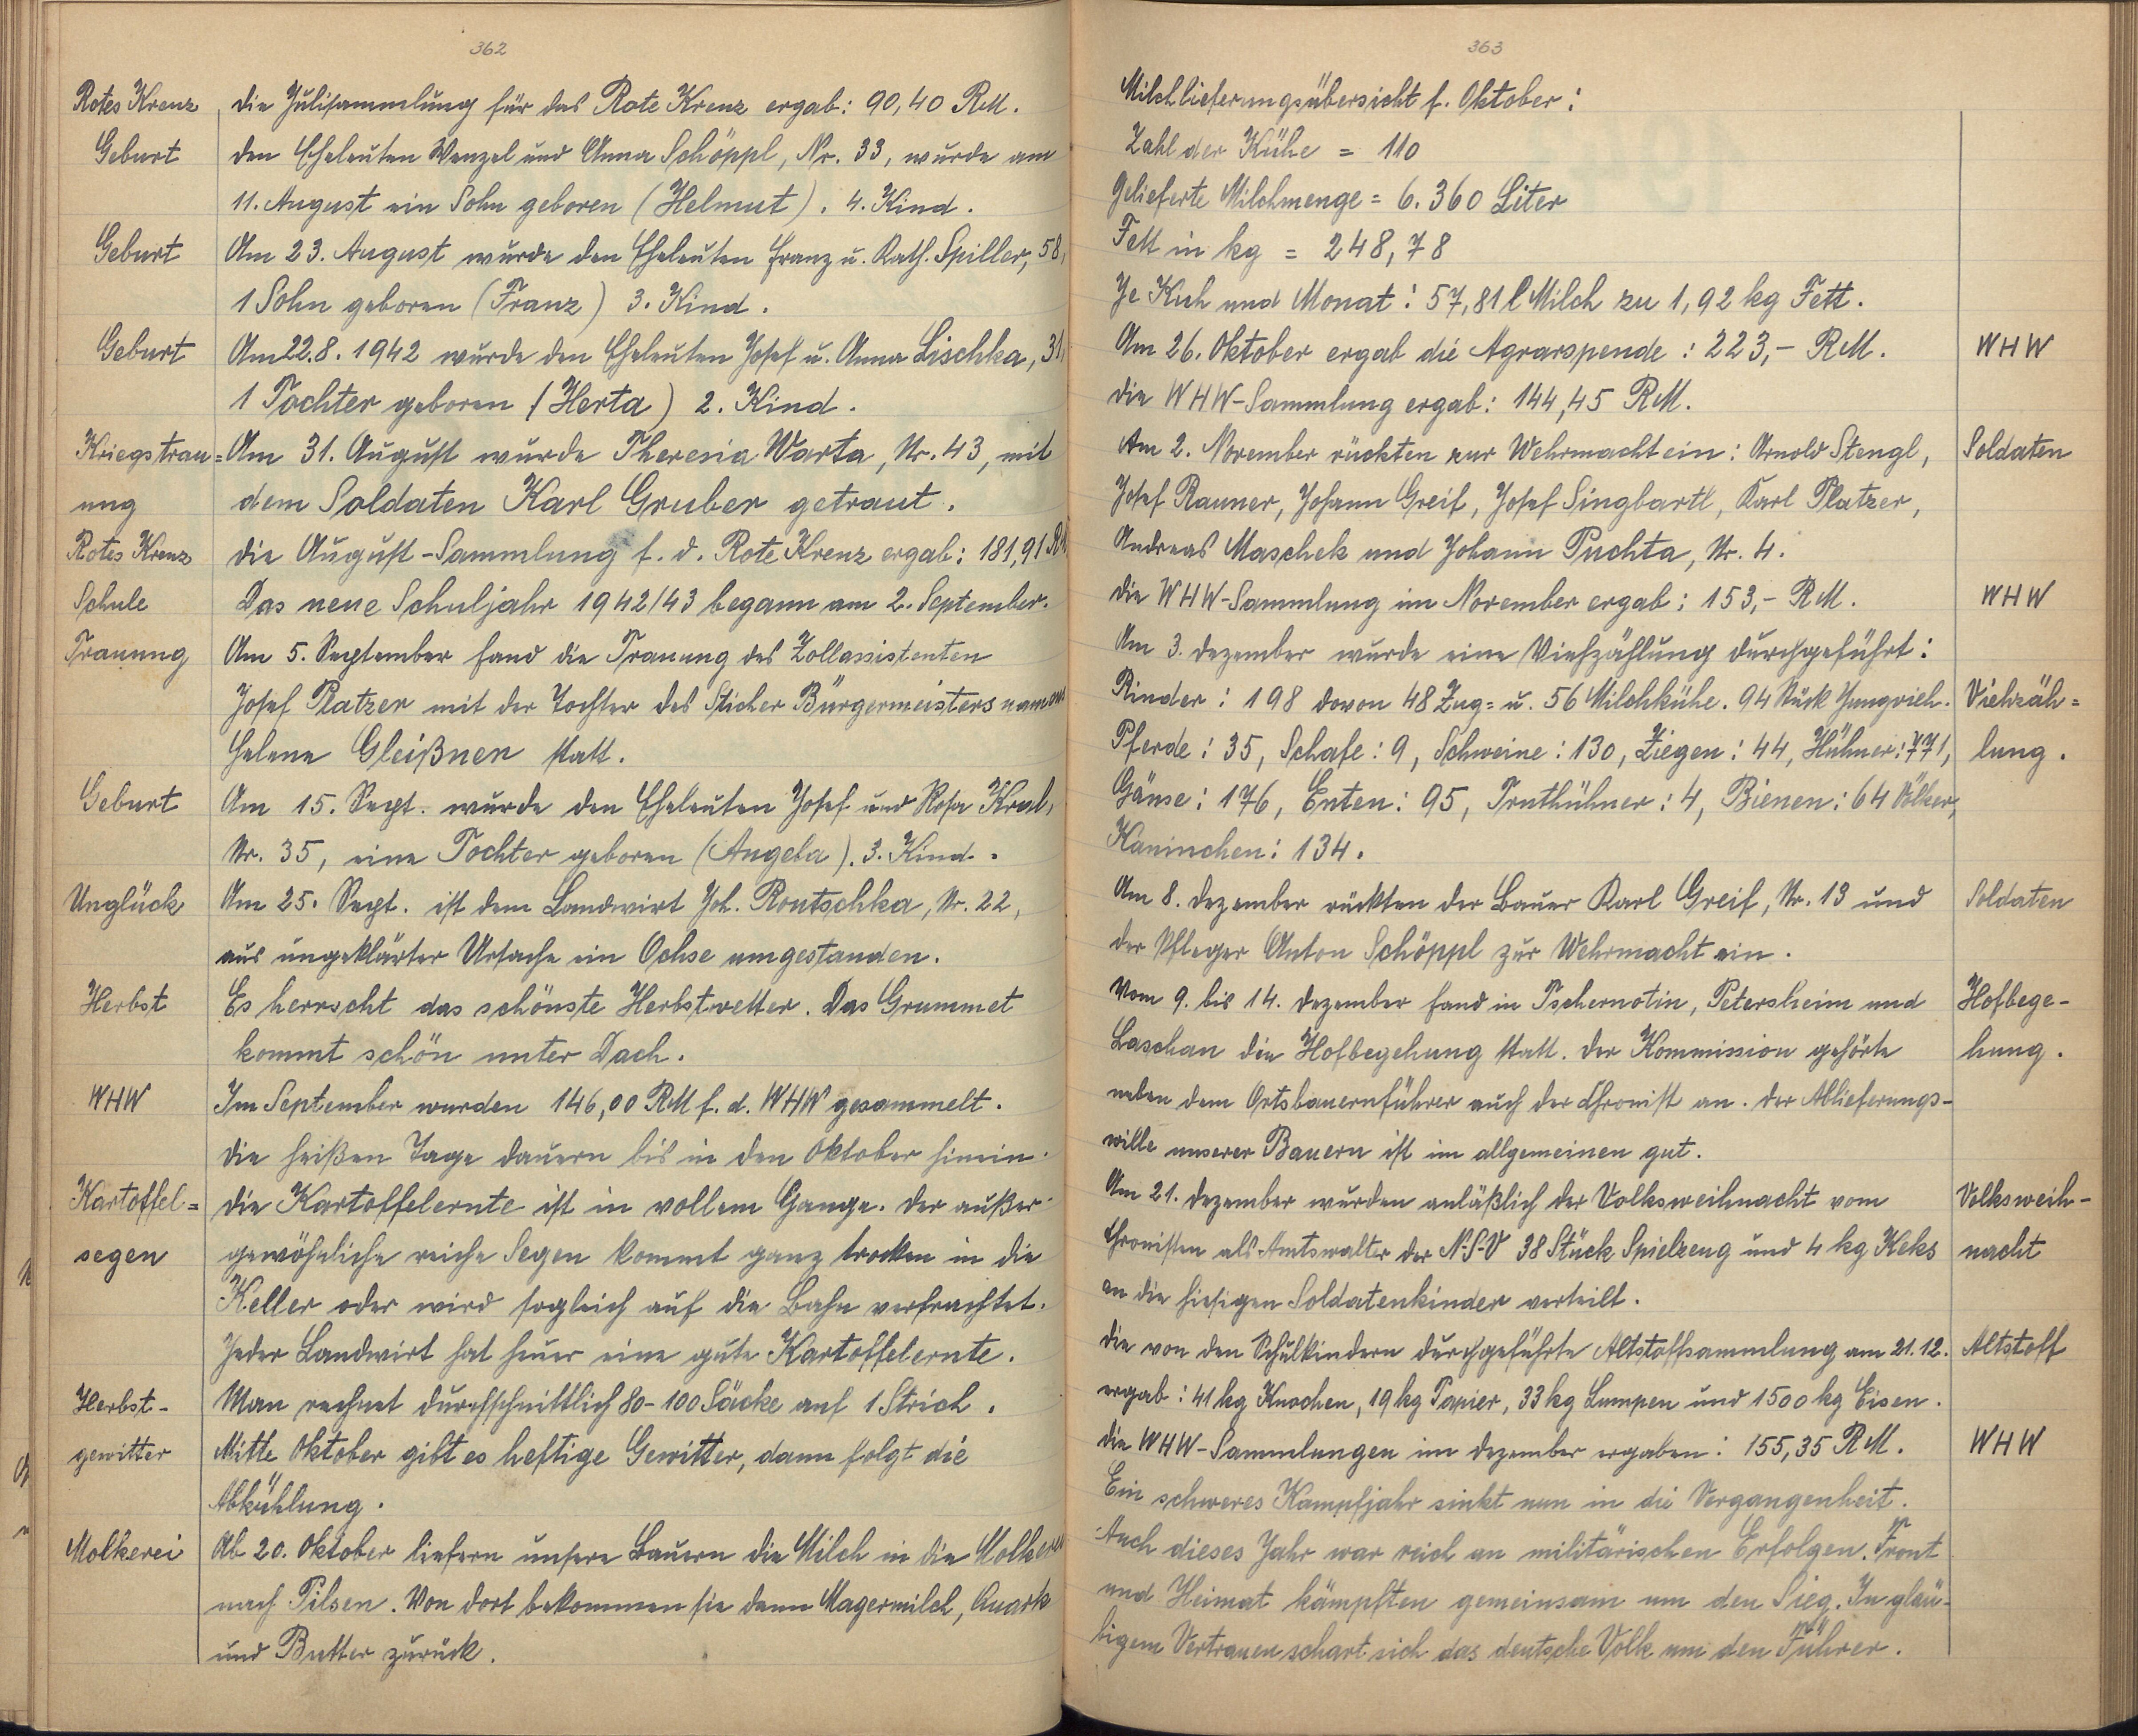 362
Rotes Kreuz die Julisammlung für das Rote Kreuz ergab: 90,40 RM.
Geburt den Eheleuten Wenzel und Anna Schöppl, Nr. 33, wurde am
11. August ein Sohn geboren (Helmut). 4. Kind.
Geburt Am 23. August wurde den Eheleuten Franz u. Kath. Spiller, 58,
1 Sohn geboren (Franz) 3. Kind.
Geburt Am 22.8. 1942 wurde den Eheleuten Josef u. Anna Lischka, 31,
1 Tochter geboren (Herta) 2. Kind.
Kriegstrau= Am 31. August wurde Theresia Warta, Nr. 43, mit
ung dem Soldaten Karl Gruber getraut.
Rotes Kreuz die August-Sammlung f. d. Rote Kreuz ergab: 181,91 RM
Schule Das neue Schuljahr 1942/43 begann am 2. September.
Trauung Am 5. September fand die Trauung des Zollassistenten
Josef Platzer mit der Tochter des Sticher Bürgermeisters namens
Helene Gleißner statt.
Geburt Am 15. Sept. wurde den Eheleuten Josef und Rosa Kral,
Nr. 35, eine Tochter geboren (Angela). 3. Kind.
Unglück Am 25. Sept. ist dem Landwirt Joh. Routschka, Nr. 22,
aus ungeklärter Ursache ein Ochse umgestanden.
Herbst Es herrscht das schönste Herbstwetter. Das Grummet
kommt schön unter Dach.
WHW Im September wurden 146,00 RM f. d. WHW gesammelt.
die heißen Tage dauern bis in den Oktober hinein.
Kartoffel= die Kartoffelernte ist in vollem Gange. der außer-
segen gewöhnliche reiche Segen kommt ganz trocken in die
Keller oder wird sogleich auf die Bahn verfrachtet.
Jeder Landwirt hat heuer eine gute Kartoffelernte.
Herbst- Man rechnet durchschnittlich 80-100 Säcke auf 1 Strich.
gewitter Mitte Oktober gibt es heftige Gewitter, dann folgt die
Abkühlung.
Molkerei Ab 20. Oktober liefern unsere Bauern die Milch in die Molkerei
nach Pilsen. Von dort bekommen sie dann Magermilch, Quark
und Butter zurück.
363
Milchlieferungsübersicht f. Oktober:
Zahl der Kühe = 110
Gelieferte Milchmenge = 6.360 Liter
Fett in kg = 248,78
Je Kuh und Monat: 57,81 l Milch zu 1,92 kg Fett.
Am 26. Oktober ergab die Agrarspende: 223,- RM. WHW
die WHW-Sammlung ergab: 144,45 RM.
Am 2. November rückten zur Wehrmacht ein: Arnold Stengl, Soldaten
Josef Rauner, Johann Greif, Josef Singbartl, Karl Platzer,
Andreas Maschek und Johann Puchta, Nr. 4.
die WHW-Sammlung im November ergab: 153,- RM. WHW
Am 3. dezember wurde eine Viehzählung durchgeführt:
Rinder: 198 davon 48 Zug= u. 56 Milchkühe. 94 Stück Jungvieh. Viehzäh=
Pferde: 35, Schafe: 9, Schweine: 130, Ziegen: 44, Hühner: 771, lung.
Gänse: 176, Enten: 95, Truthühner: 4, Bienen: 64 Völker,
Kaninchen: 134.
Am 8. dezember rückten der Bauer Karl Greif, Nr. 13 und Soldaten
der Pfleger Anton Schöppl zur Wehrmacht ein.
Vom 9. bis 14. dezember fand in Tschernotin, Petersheim und Hofbege-
Laschan die Hofbegehung statt. der Kommission gehörte hung.
neben dem Ortsbauernführer auch der Chronist an. der Ablieferungs-
wille unserer Bauern ist im allgemeinen gut.
Am 21. dezember wurden anläßlich der Volksweihnacht vom Volksweih-
Chronisten als Amtswalter der N.S.V 38 Stück Spielzeug und 4 kg Keks nacht
an die hiesigen Soldatenkinder verteilt.
die von den Schulkindern durchgeführte Altstoffsammlung am 21.12. Altstoff
ergab: 41 kg Knochen, 19 kg Papier, 33 kg Lumpen und 1500 kg Eisen.
die WHW-Sammlungen im dezember ergaben: 155,35 RM. WHW
Ein schweres Kampfjahr sinkt nun in die Vergangenheit.
Auch dieses Jahr war reich an militärischen Erfolgen. Front
und Heimat kämpften gemeinsam um den Sieg. In gläu-
bigem Vertrauen schart sich das deutsche Volk um den Führer.